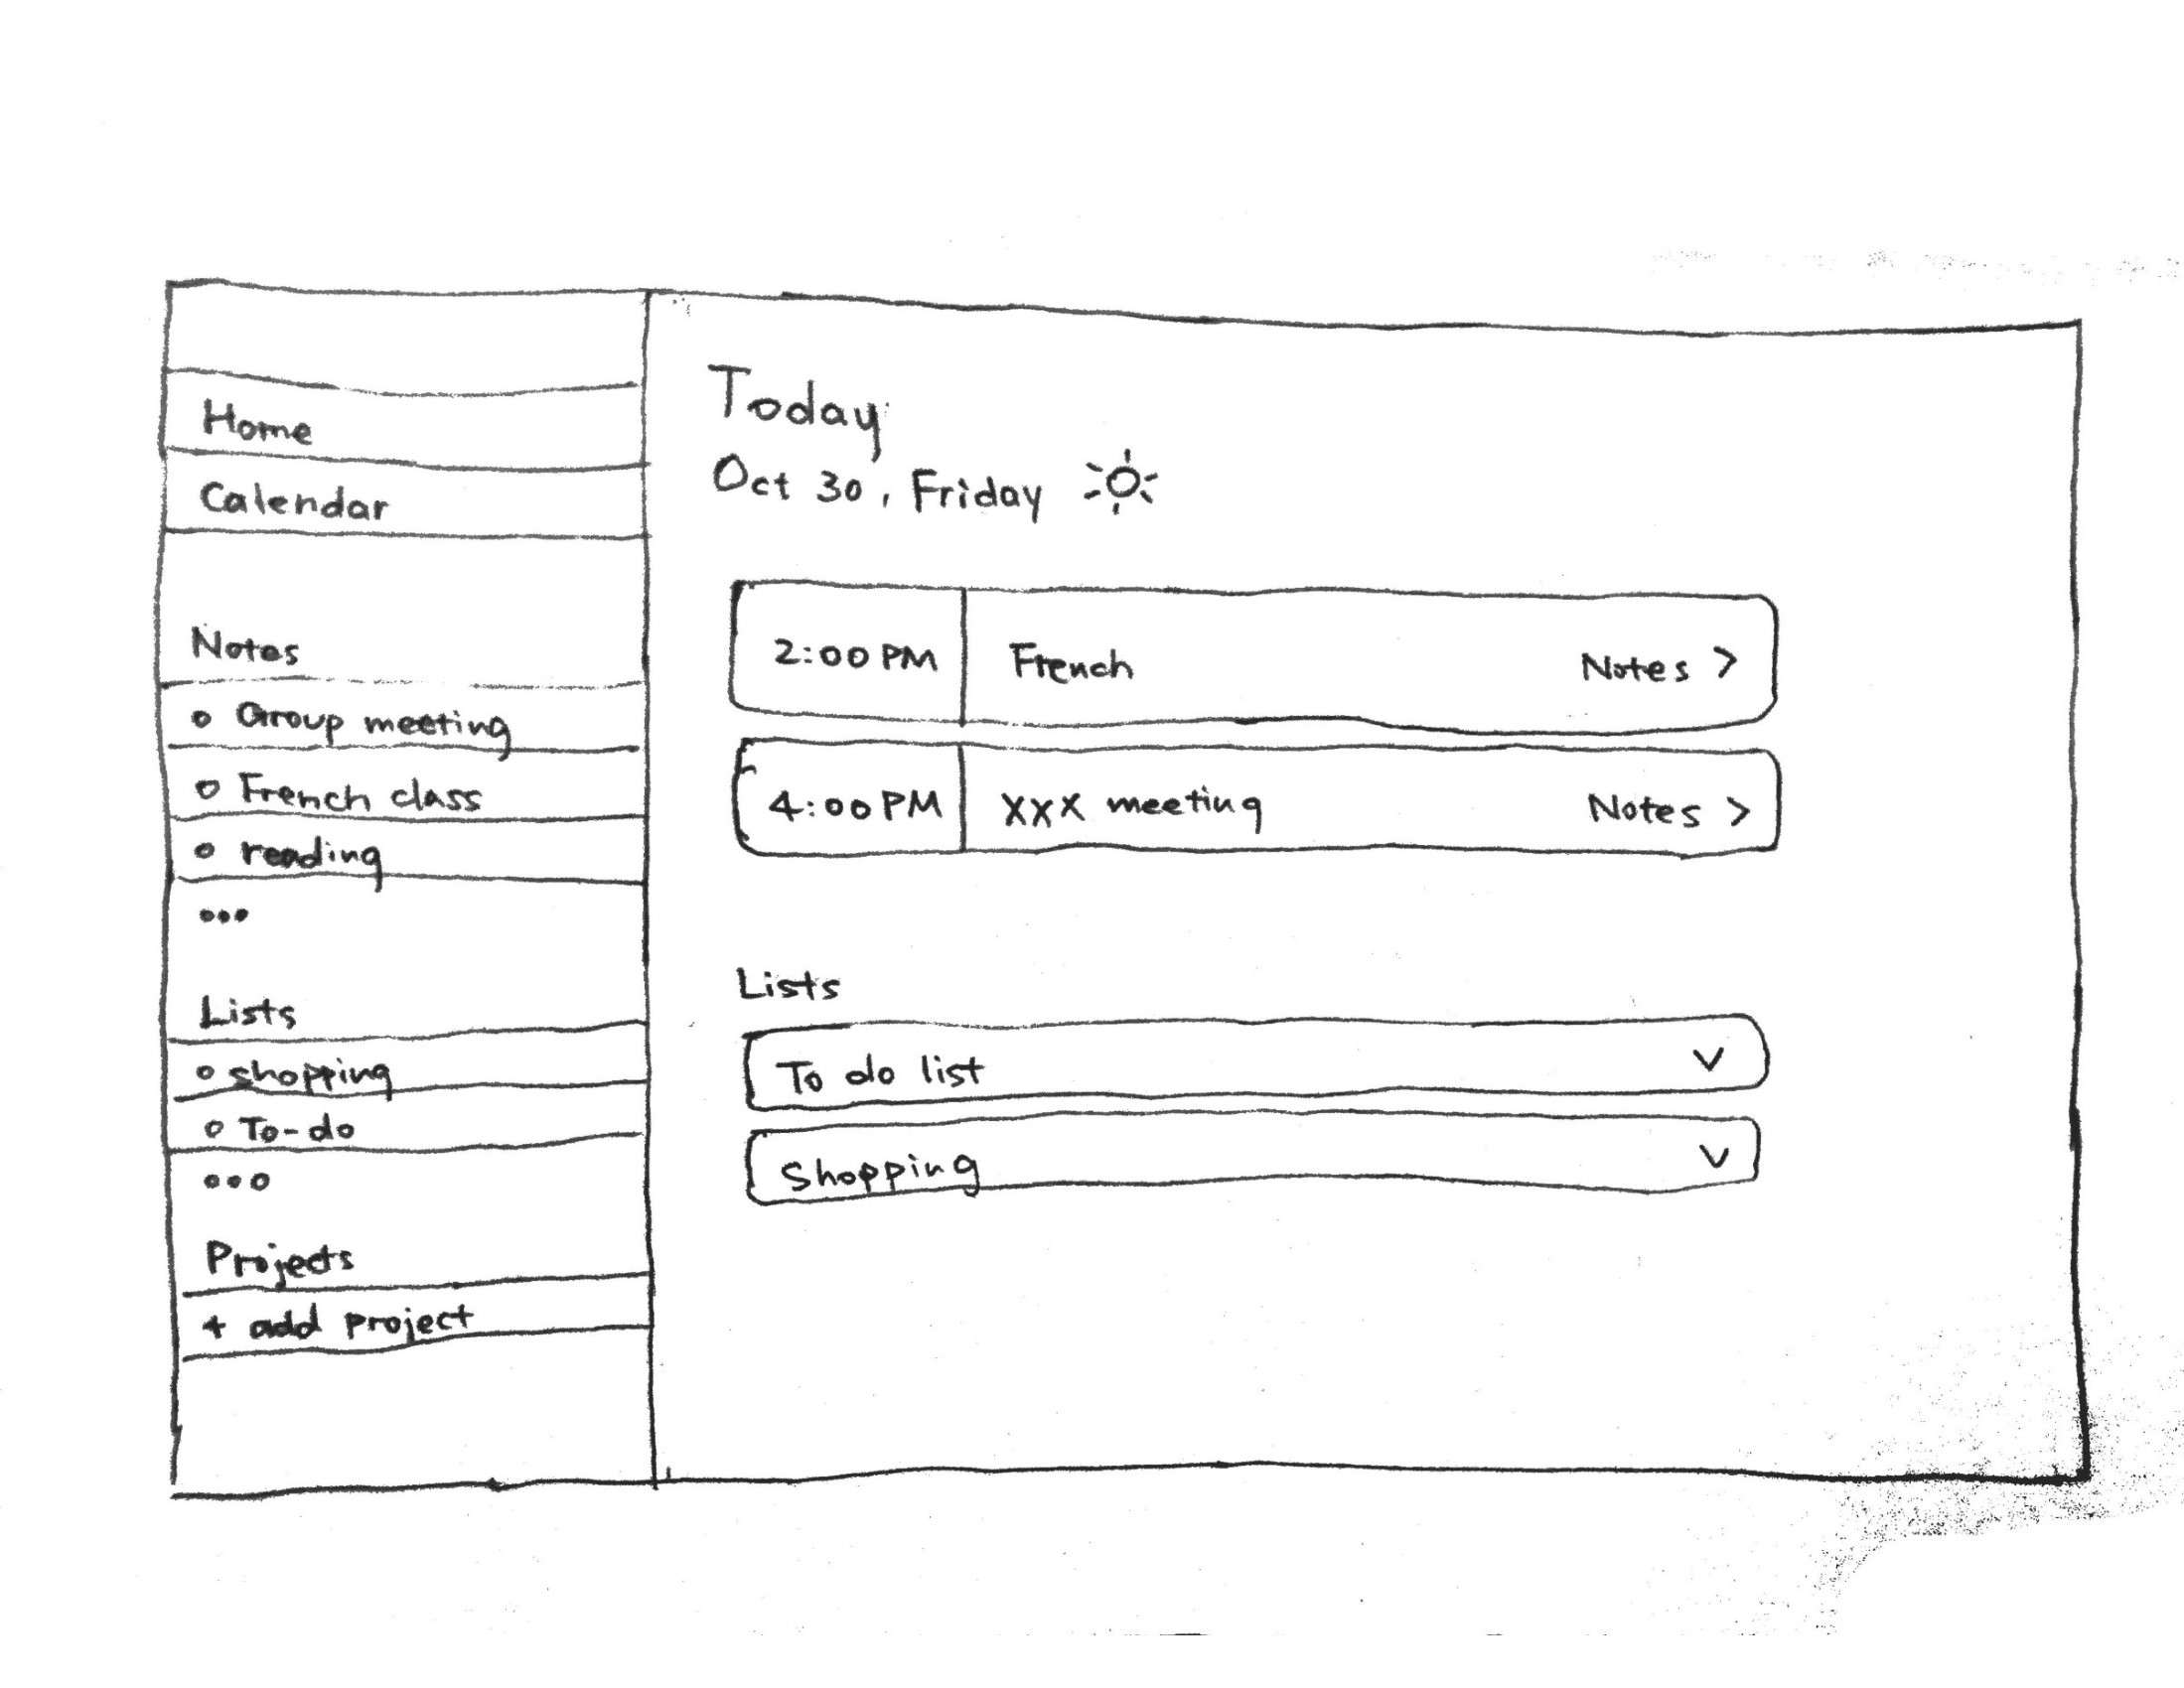 Home
Calendar
Notes
Group meeting
French class
reading
Lists
shopping
To-do
Projects
+ add project
Today
Oct 30, Friday
2:00 PM French Notes >
4:00 PM XXX meeting Notes >
Lists
To do list
Shopping